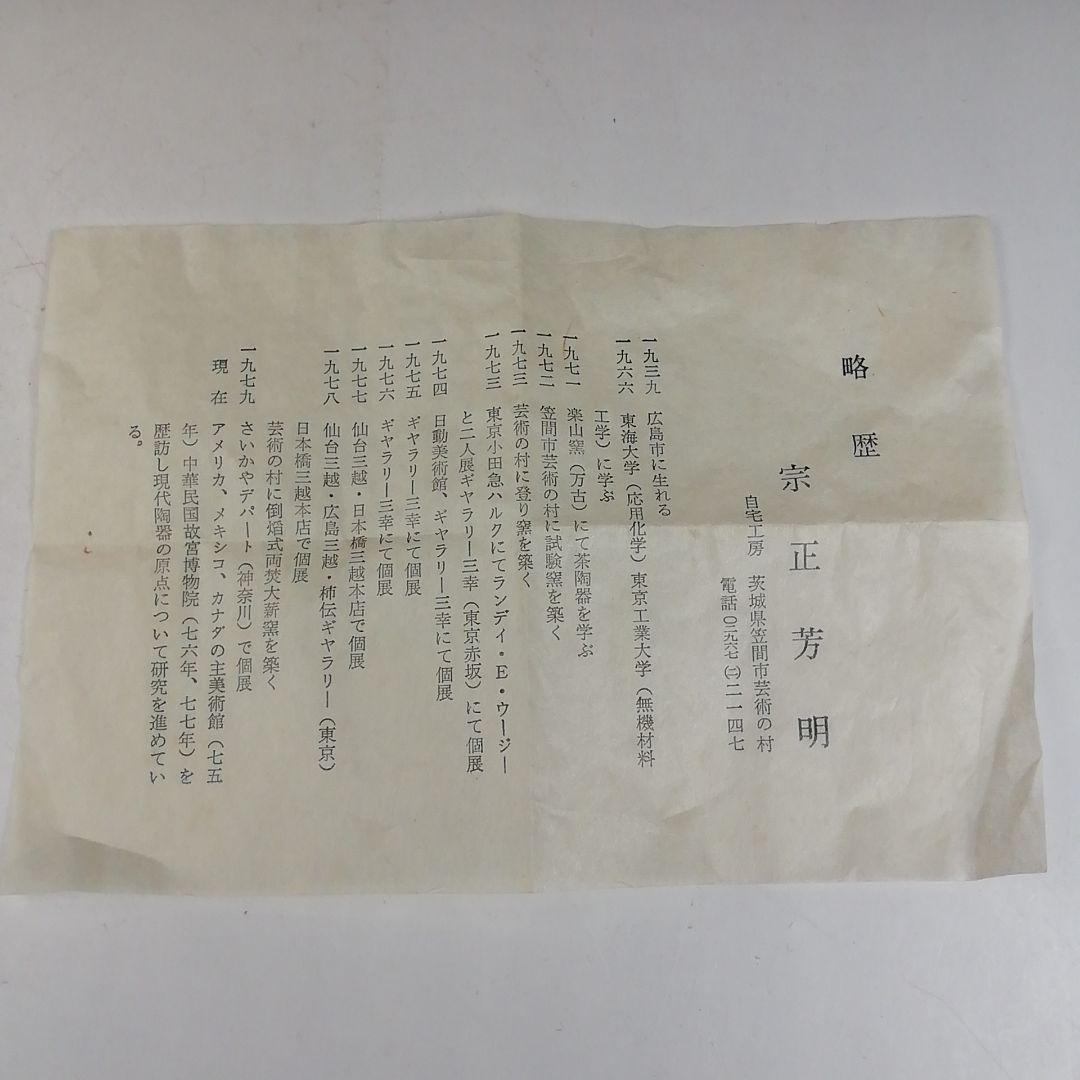 略歴
宗正芳明
自宅工房 茨城県笠間市芸術の村
電話〇二九六七(二)二一四七
一九三九 広島市に生れる
一九六六 東海大学(応用化学)東京工業大学(無機材料
工学)に学ぶ
一九七一 楽山窯(万古)にて茶陶器を学ぶ
一九七二 笠間市芸術の村に試験窯を築く
一九七三 芸術の村に登り窯を築く
一九七三 東京小田急ハルクにてランディ・E・ウージー
と二人展ギャラリー三幸(東京赤坂)にて個展
一九七四 日動美術館、ギャラリー三幸にて個展
一九七五 ギャラリー三幸にて個展
一九七六 ギャラリー三幸にて個展
一九七七 仙台三越・日本橋三越本店で個展
一九七八 仙台三越・広島三越・柿伝ギャラリー(東京)
日本橋三越本店で個展
芸術の村に倒焔式両焚大薪窯を築く
一九七九 さいかやデパート(神奈川)で個展
現在 アメリカ、メキシコ、カナダの主美術館(七五
年)中華民国故宮博物院(七六年、七七年)を
歴訪し現代陶器の原点について研究を進めてい
る。